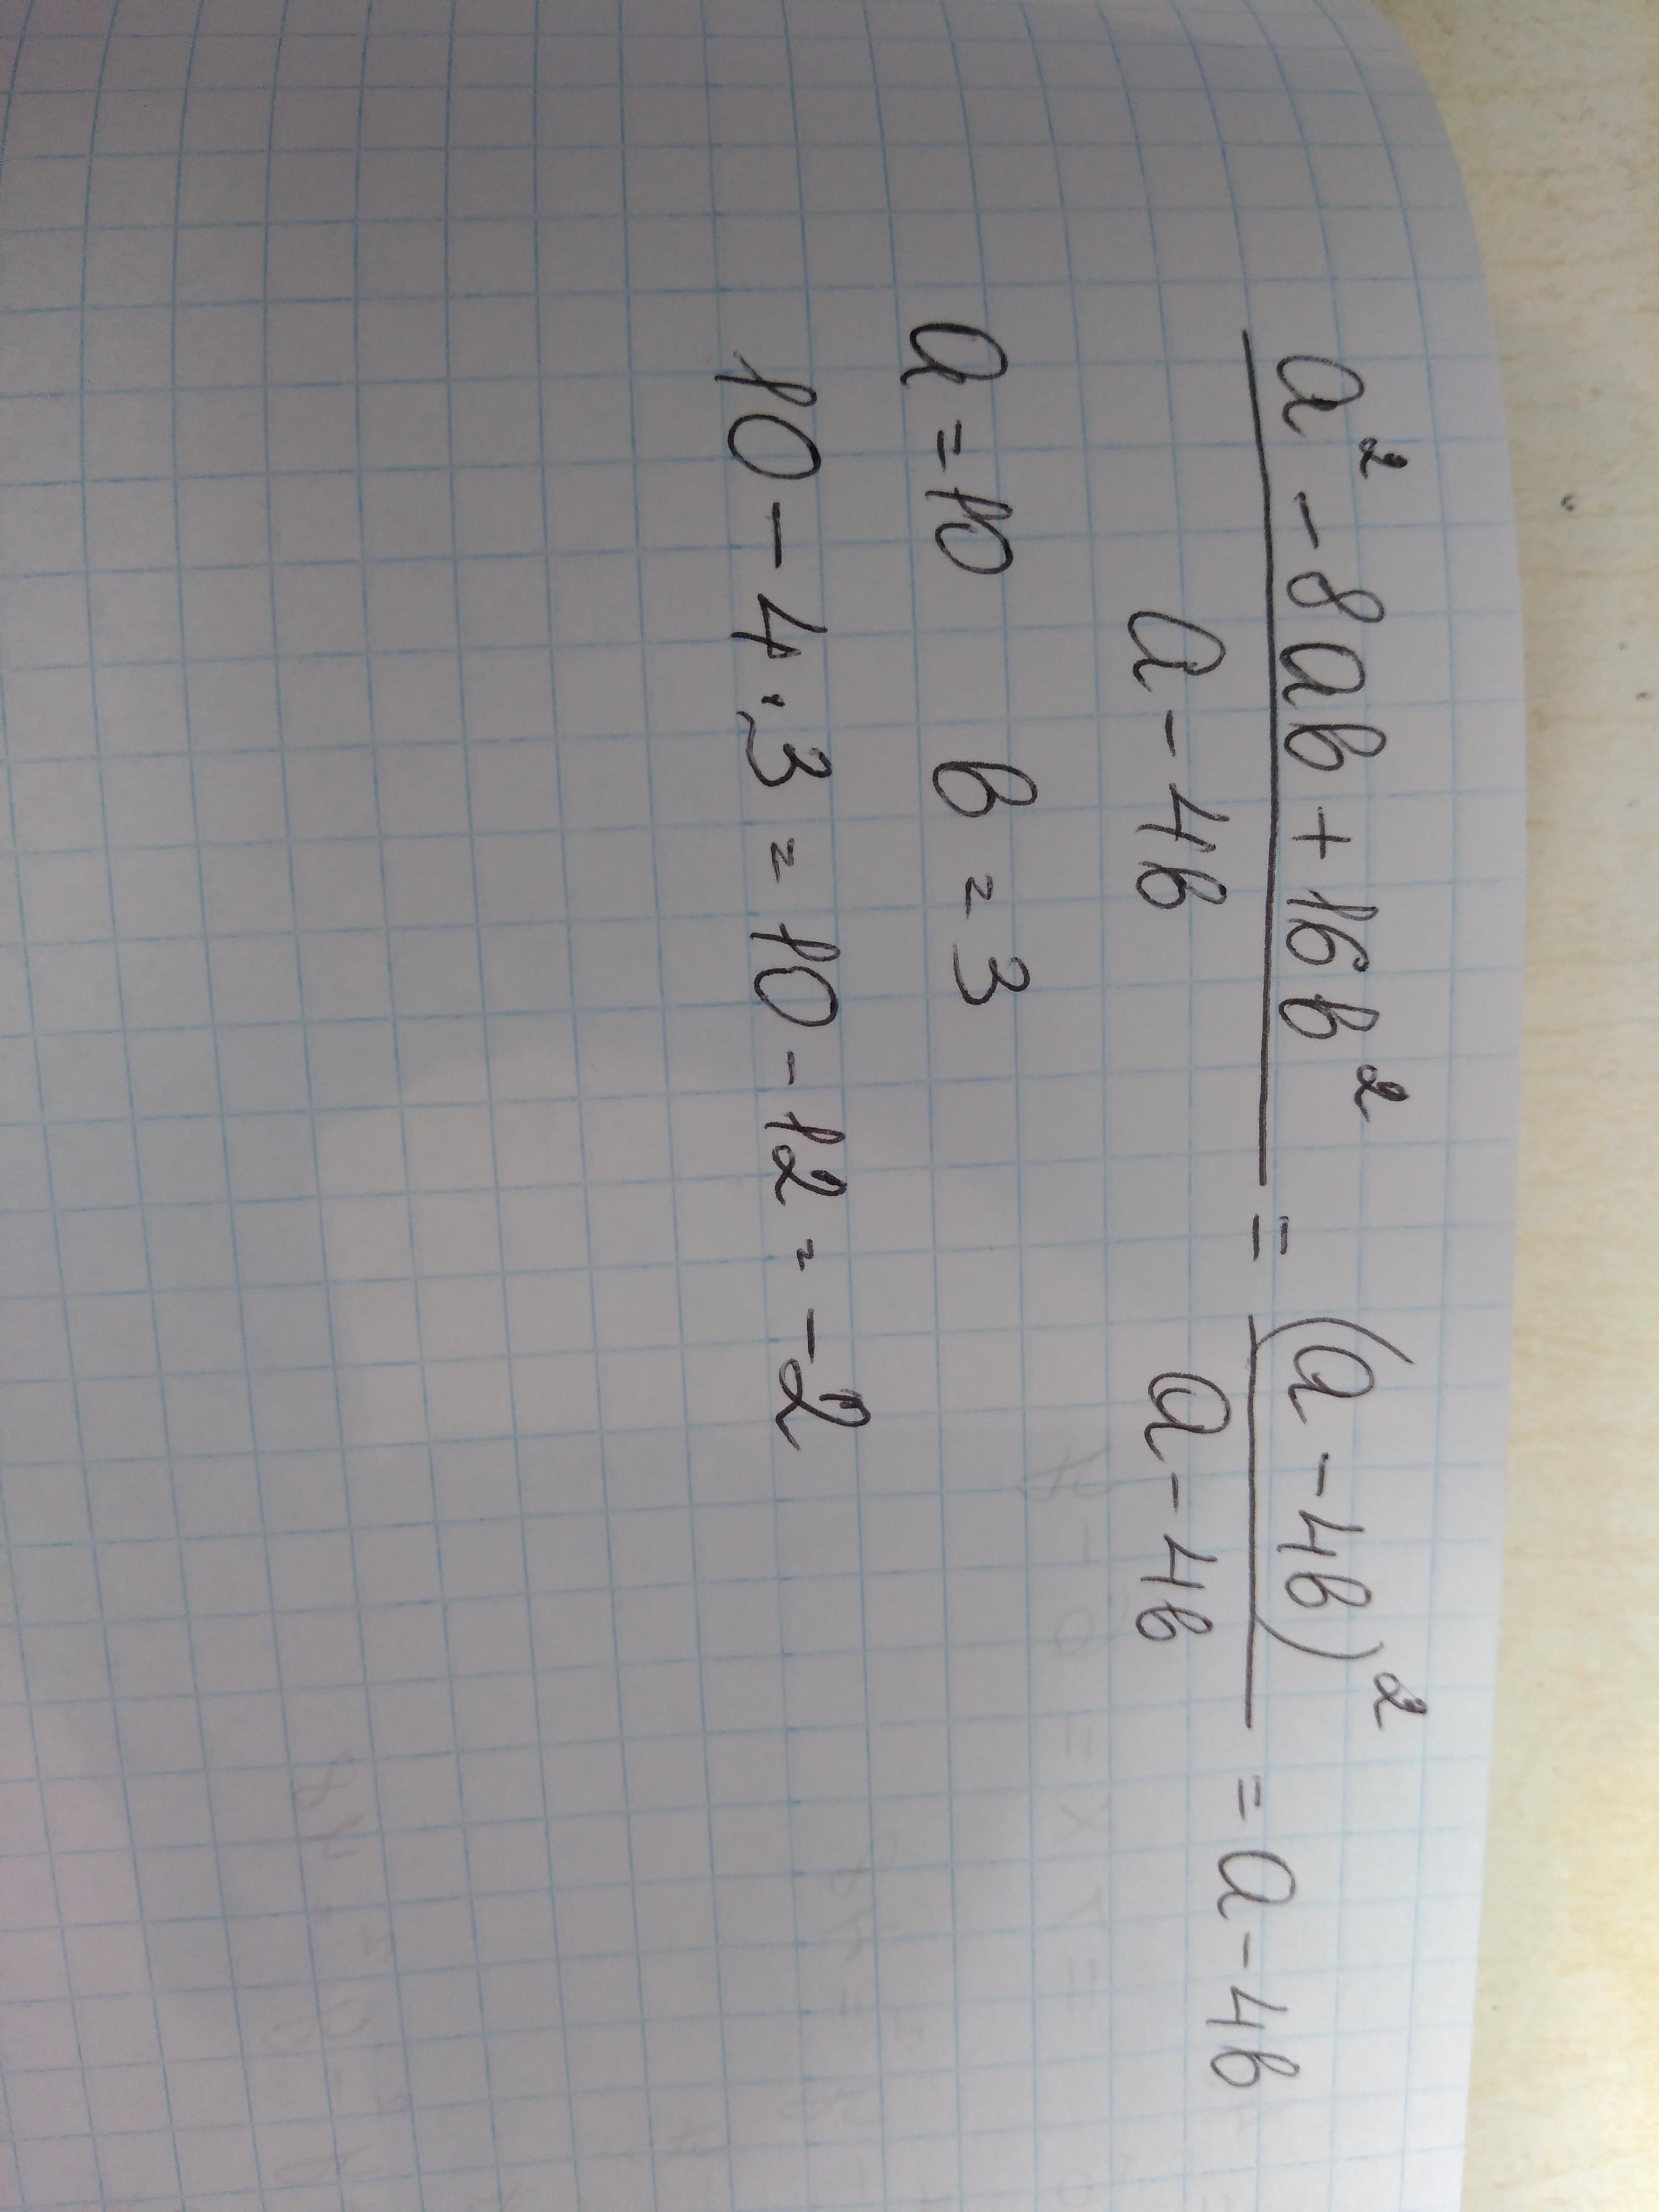 (a² - 8ab + 16b²)/(a - 4b) = (a - 4b)²/(a - 4b) = a - 4b
a = 10 b = 3
10 - 4·3 = 10 - 12 = -2